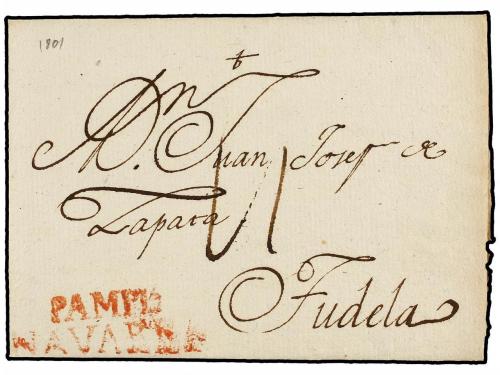 1801
A Dn. Juan Josef de
Zapata
Tudela
PAMPL
NAVARRA